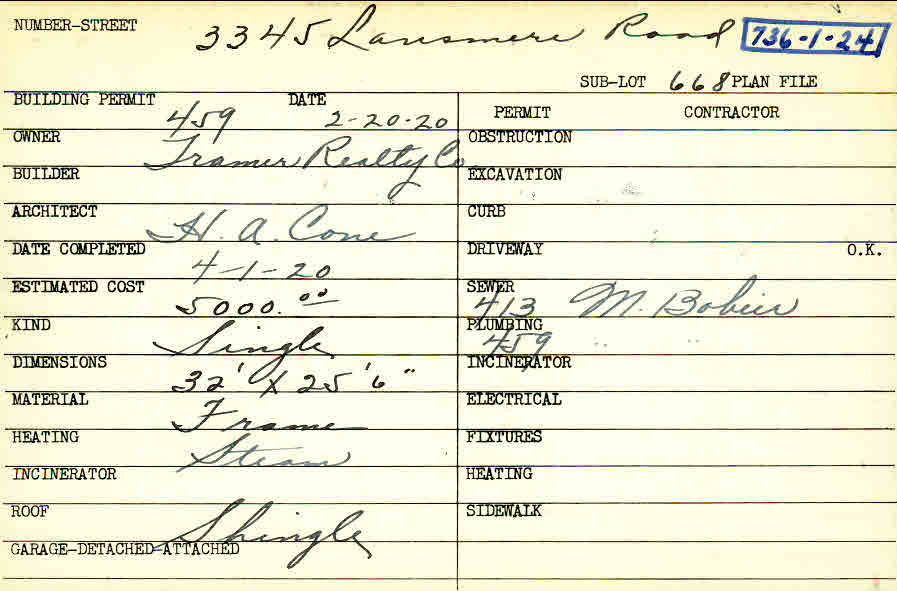 NUMBER-STREET 3345 Lansmere Road 736-1-24
SUB-LOT 668 PLAN FILE
BUILDING PERMIT 459 DATE 2-20-20
PERMIT CONTRACTOR
OWNER Framer Realty Co
OBSTRUCTION
BUILDER
EXCAVATION
ARCHITECT H. A. Cone
CURB
DATE COMPLETED 4-1-20
DRIVEWAY O.K.
ESTIMATED COST 5000.00
SEWER 413 M. Bobier
KIND Single
PLUMBING 459 " "
DIMENSIONS 32' X 25'6"
INCINERATOR
MATERIAL Frame
ELECTRICAL
HEATING Steam
FIXTURES
INCINERATOR
HEATING
ROOF Shingle
SIDEWALK
GARAGE-DETACHED-ATTACHED